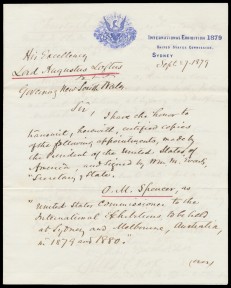 International Exhibition 1879
United States Commission,
Sydney
Sept 27 1879
His Excellency
Lord Augustus Loftus
Governor New South Wales
Sir,
I have the honor to
transmit, herewith, certified copies
of the following appointments, made by
the President of the United States of
America, and signed by Wm. M. Evarts
"Secretary of State.
O. M. Spencer, as
"United States Commissioner to the
International Exhibitions, to be held
at Sydney and Melbourne, Australia,
in 1879 and 1880."
(over)